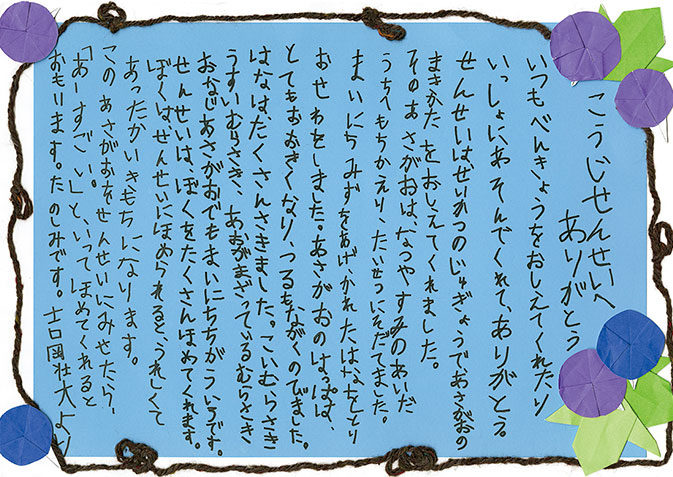 こうじせんせいへ
ありがとう
いつもべんきょうをおしえてくれたり
いっしょにあそんでくれて、ありがとう
せんせいはせいかつのじゅぎょうであさがおの
まきかたをおしえてくれました。
そのあさがおは、なつやすみのあいだ
うちへもちかえり、たいせつにそだてました。
まいにちみずをあげ、かれたはなをとり
おせわをしました。あさがおのはっぱは、
とてもおおきくなり、つるもながくのびました。
はなは、たくさんさきました。こいむらさき
うすいむらさき、あおがまざっているむらさき
おなじあさがおでもまいにちちがういろです。
せんせいは、ぼくをたくさんほめてくれます。
ぼくはせんせいにほめられると、うれしくて
あったかいきもちになります。
このあさがおをせんせいにみせたら、
「あーすごい。」と、いってほめてくれると
おもいます。たのしみです。吉岡壮大より